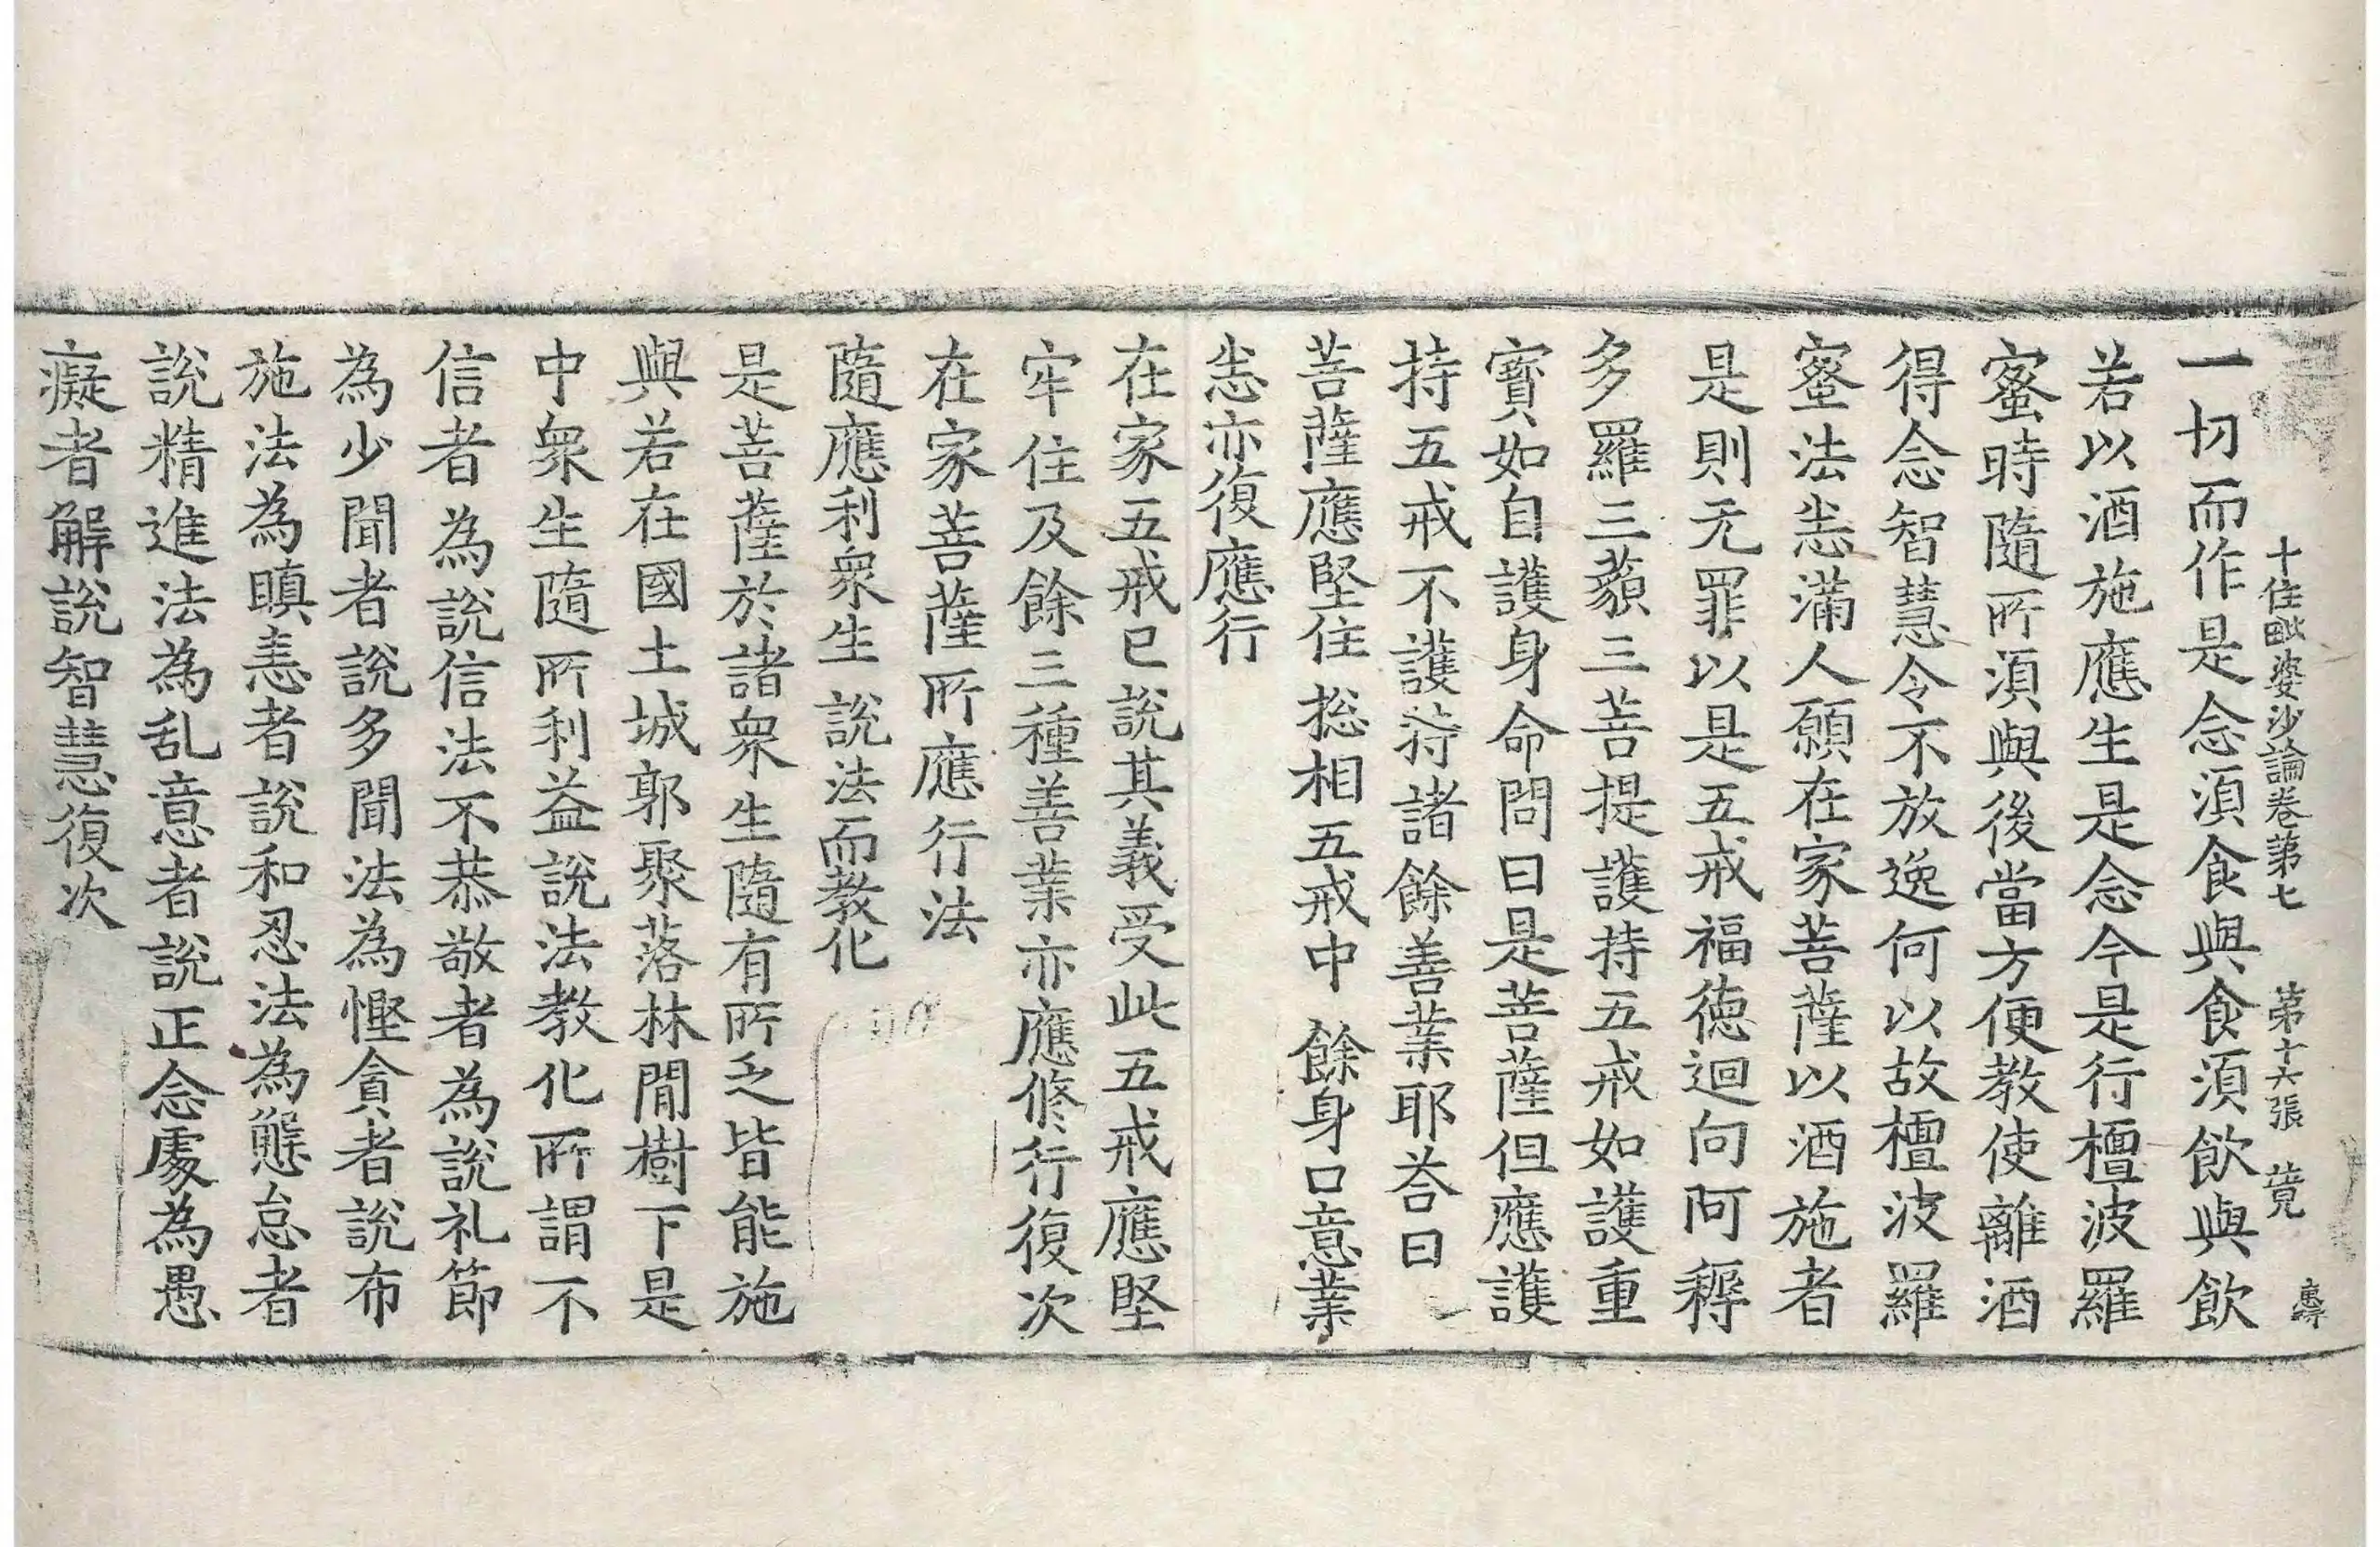 十住毗婆沙論卷第七　第十六張　竟
一切而作是念湏食與食湏飲與飲
若以酒施應生是念今是行檀波羅
蜜時隨所湏與後當方便教使離酒
得念智慧令不放逸何以故檀波羅
蜜法恚滿人願在家菩薩以酒施者
是則无罪以是五戒福德迴向阿耨
多羅三藐三菩提護持五戒如護重
寶如自護身命問曰是菩薩但應護
持五戒不護持諸餘善業耶荅曰
菩薩應堅住　捴相五戒中　餘身口意業
恚亦復應行
在家五戒已說其義受此五戒應堅
牢住及餘三種善業亦應修行復次
在家菩薩所應行法
隨應利衆生　說法而教化
是菩薩於諸衆生隨有所乏皆能施
與若在國土城郭聚落林閒樹下是
中衆生隨所利益說法教化所謂不
信者為說信法不恭敬者為說礼節
為少聞者說多聞法為慳貪者說布
施法為瞋恚者說和忍法為懈怠者
說精進法為乱意者說正念處為愚
癡者解說智慧復次